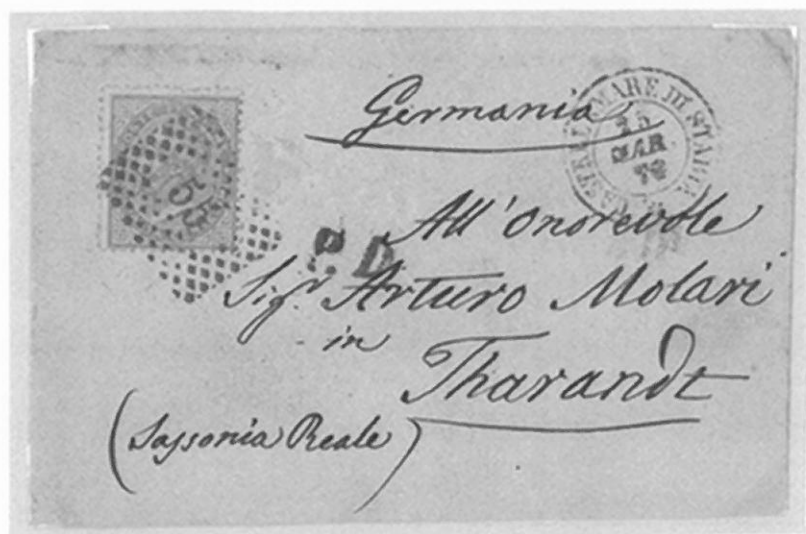 Germania
CASTELLAMARE DI STABIA
15
MAR
76
P.D.
All' Onorevole
Sigr. Arturo Molari
in
Tharandt
(Sassonia Reale)